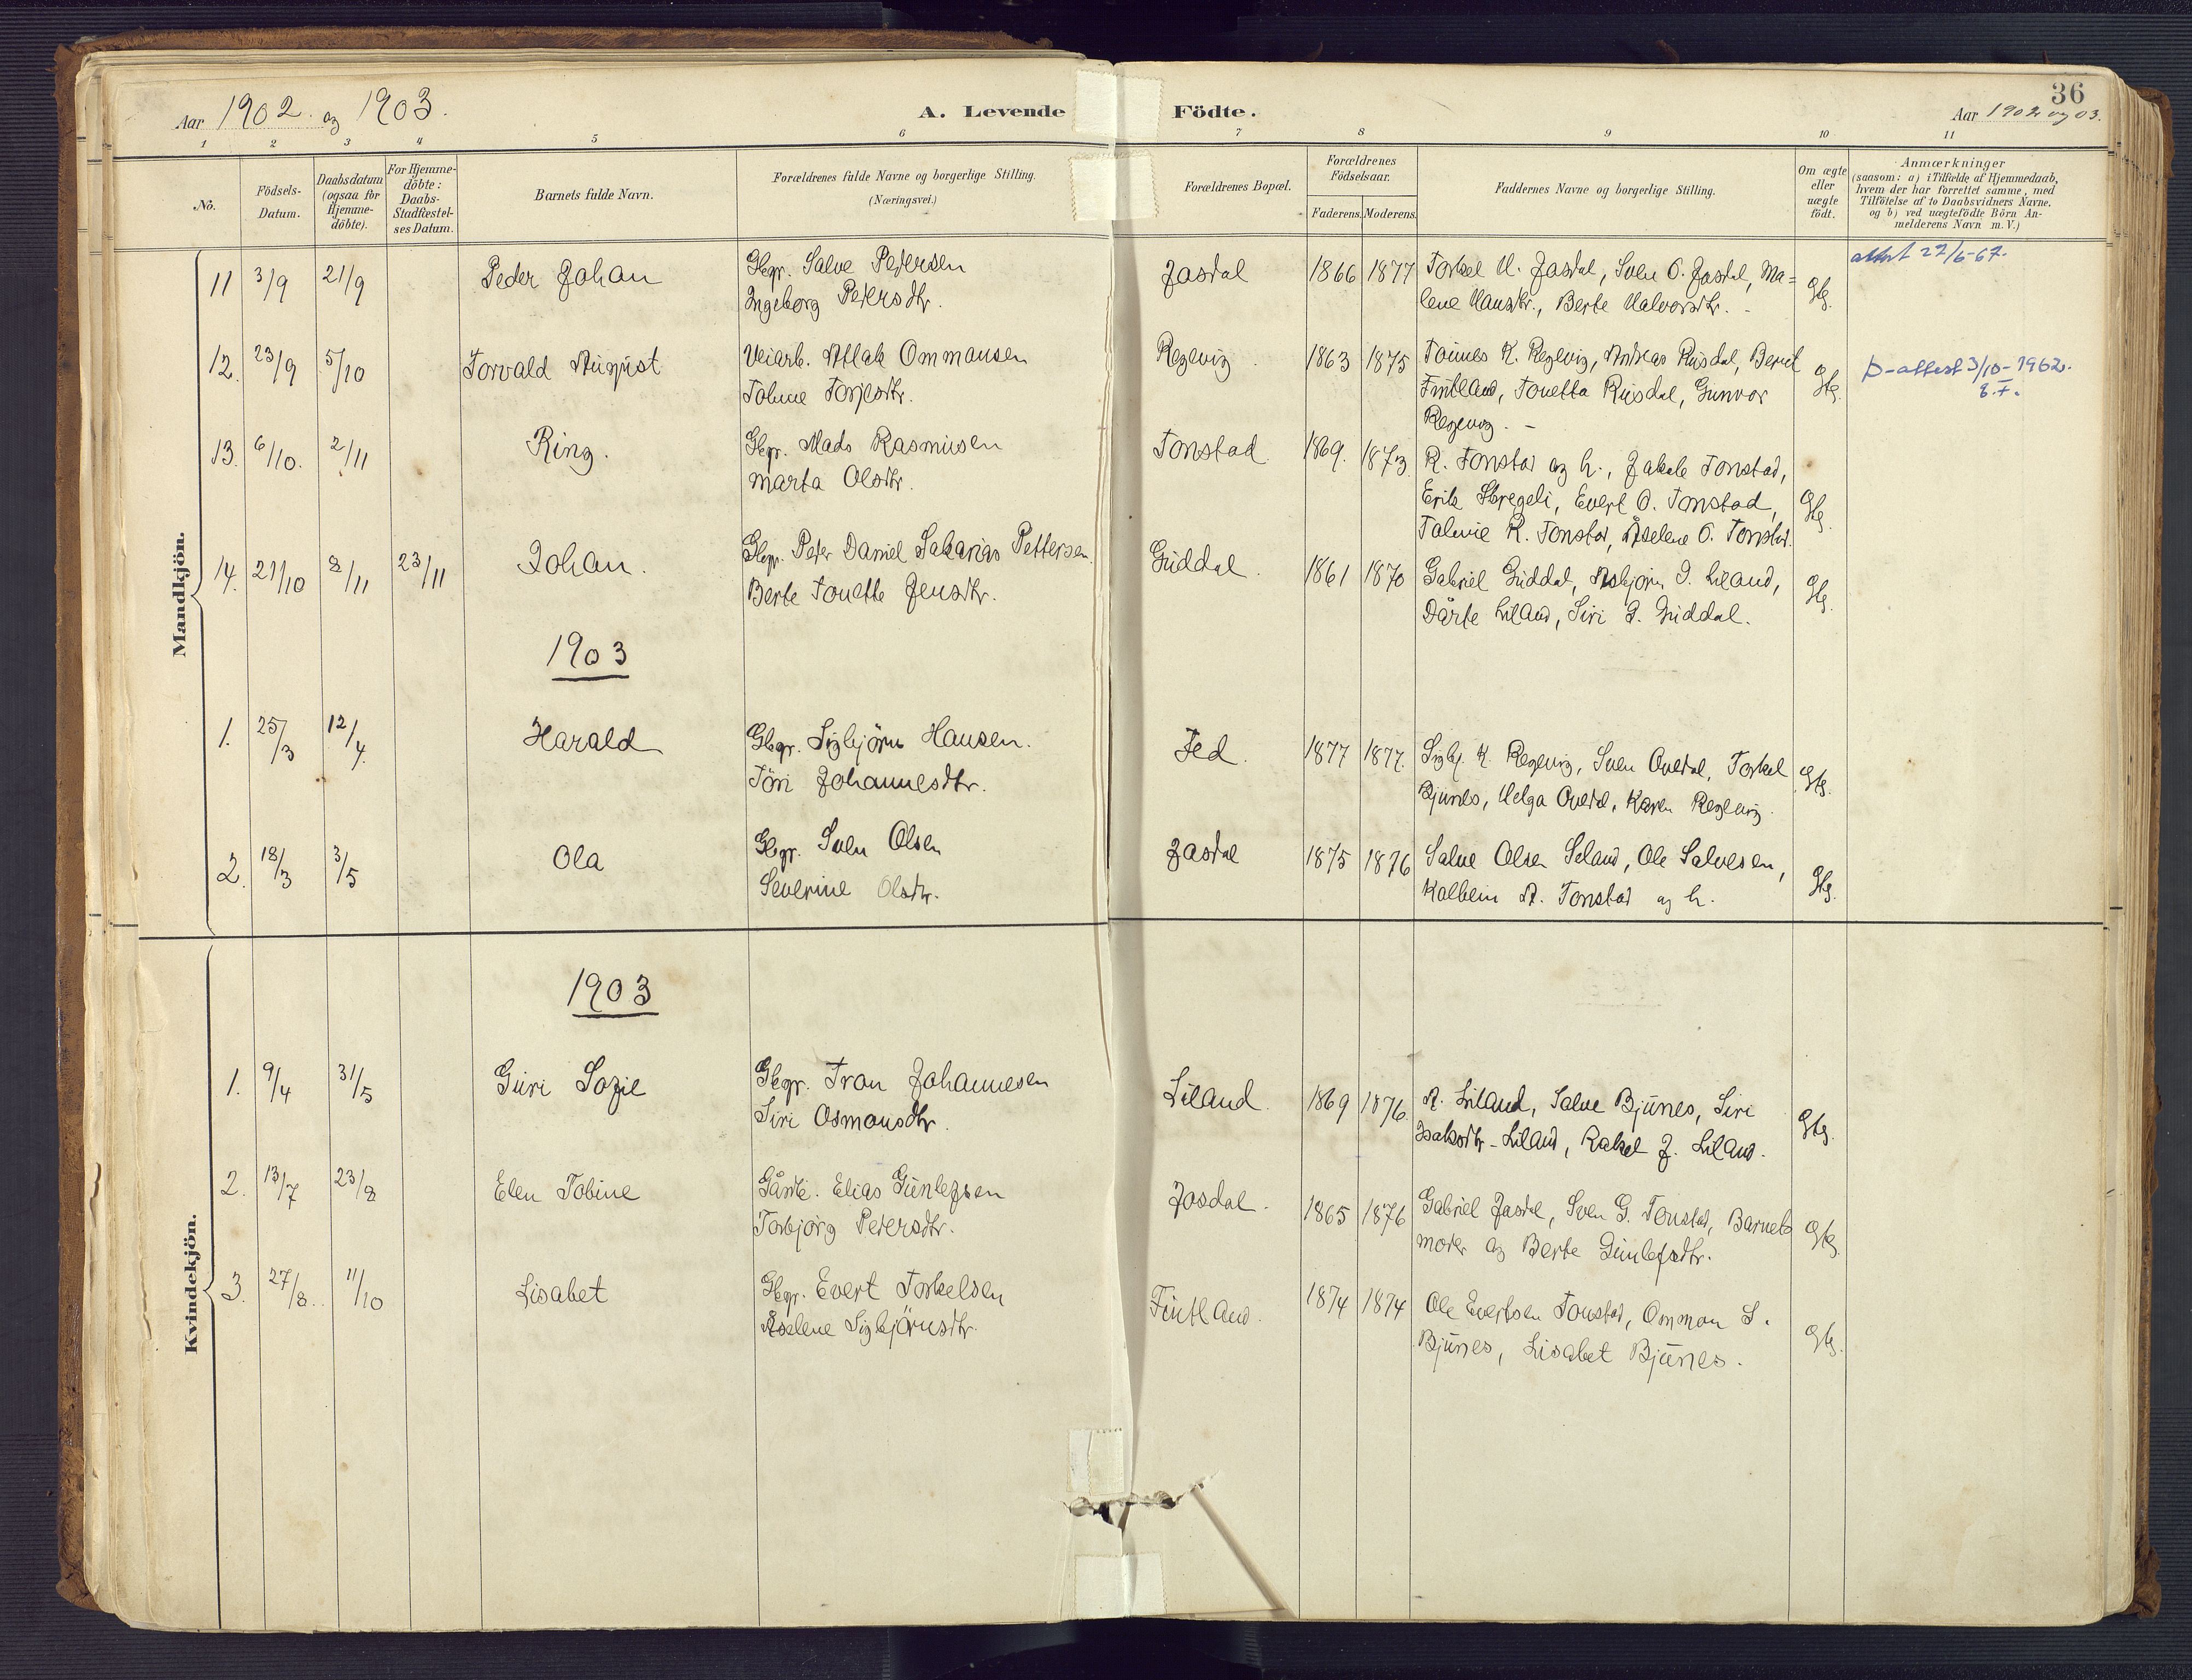 36
Aar 1902 og 1903.
A. Levende Födte.
Aar 1902 og 03.
1 2 3 4 5 6 7 8 9 10 11
No.
Födsels-
Datum.
Daabsdatum
(ogsaa for
Hjemme-
döbte).
For Hjemme-
döbte:
Daabs-
Stadfæstel-
ses Datum.
Barnets fulde Navn.
Forældrenes fulde Navne og borgerlige Stilling.
(Næringsvei.)
Forældrenes Bopæl.
Forældrenes
Födselsaar.
Faderens. Moderens.
Faddernes Navne og borgerlige Stilling.
Om ægte
eller
uægte
födt.
Anmærkninger
(saasom: a) i Tilfælde af Hjemmedaab,
hvem der har forrettet samme, med
Tilföielse af to Daabsvidners Navne.
og b) ved uægtefödte Börn An-
melderens Navn m.V.)
Mandkjön.
11 3/9 21/9 Peder Johan Gbgr. Salve Pedersen Josdal 1866 1877 Torkel H. Josdal, Sven O. Josdal, Ma= Gtg. attest 27/6-67.
Ingeborg Petersdtr. lene Hansdtr., Berte Halvorsdtr. -
12. 23/9 5/10 Torvald August Veiarb. Atlak Ommansen Regevig 1863 1875 Tønnes K. Regevig, Andreas Rusdal, Berit Gtg. D-attest 3/10-1962.
Tobine Torjesdtr. Fintland, Tonetta Rusdal, Gunvor
Regevig. -
13. 6/10. 2/11 Ring. Gbgr. Mads Rasmusen Tonstad 1869. 1873 R. Tonstad og h., Jakob Tonstad, Gtg.
Marta Olsdtr. Erik Skregeli, Evert O. Tonstad,
Talene R. Tonstad, Åselene O. Tonstad.
14. 21/10 8/11 23/11 Johan. Gbgr. Peter Daniel Sakarias Pettersen Guddal. 1861 1870 Gabriel Guddal, Asbjörn I. Liland, Gtg.
Berte Tonette Jensdtr. Dårte Liland, Siri G. Guddal.
1903
1. 25/3 12/4. Harald Gbgr. Sigbjörn Hansen. Fed. 1877 1877. Sigbj. K. Regevig, Sven Ovedal, Torkel Gtg.
Töri Johannesdtr. Bjunes, Helga Ovedal, Karen Regevig.
2. 18/3 3/5 Ola Gbgr. Sven Olsen Josdal 1875 1876 Salve Olsen Seland, Ole Salvesen, Gtg.
Severine Olsdtr. Kolbein A. Tonstad og h.
Kvindekjön.
1903
1. 9/4 31/5 Guri Sofie Gbgr. Tron Johannesen Liland. 1869 1876. A. Liland, Salve Bjunes, Siri Gtg.
Siri Osmonsdtr. Isaksdtr. Liland, Rakel J. Liland.
2. 13/7 23/8 Elen Tobine Gårdb. Elias Gunlefsen Josdal. 1865 1876 Gabriel Josdal, Sven G. Tonstad, Barnets Gtg.
Torbjörg Petersdtr. moder og Berte Gunlefsdtr.
3. 27/8. 11/10 Lisabet Gbgr. Evert Torkelsen Fintland. 1874 1874 Ole Evertsen Tonstad, Ommon S. Gtg.
Åselene Sigbjörnsdtr. Bjunes, Lisabet Bjunes.